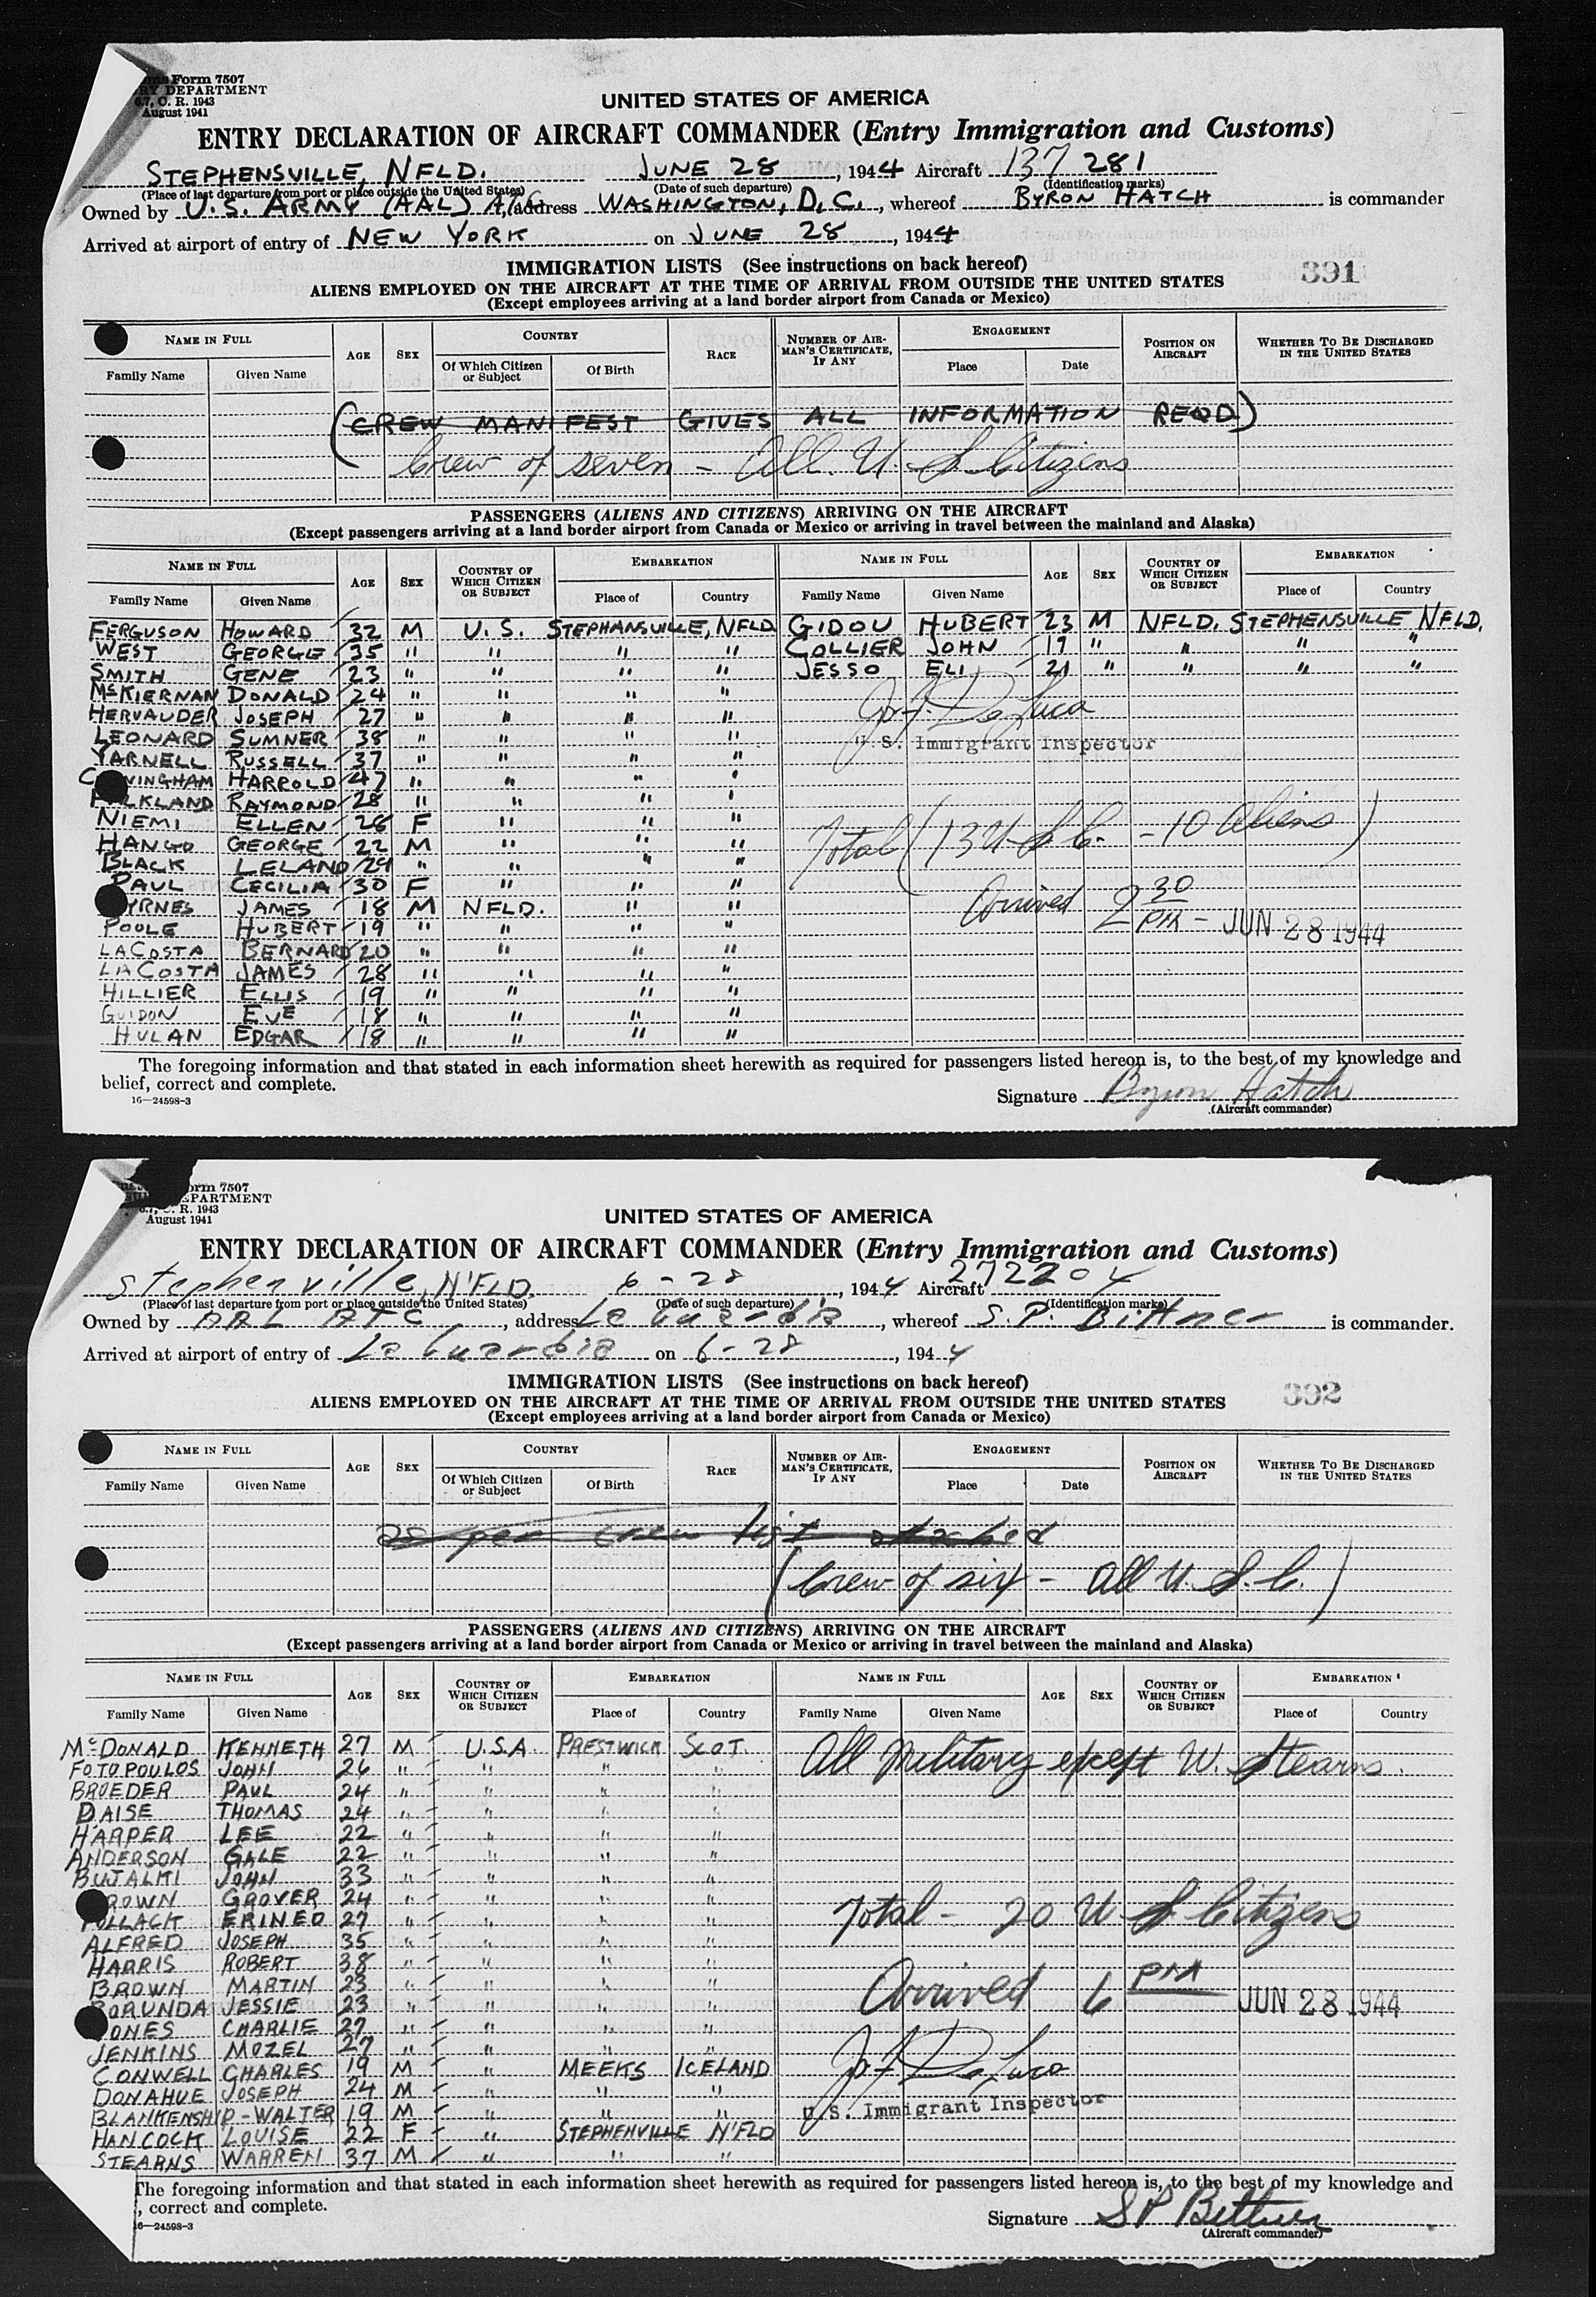 Form 7507
DEPARTMENT
C. R. 1943
August 1941
UNITED STATES OF AMERICA
ENTRY DECLARATION OF AIRCRAFT COMMANDER (Entry Immigration and Customs)
STEPHENSVILLE, NFLD. JUNE 28, 1944 Aircraft 137 281
(Place of last departure from port or place outside the United States) (Date of such departure) (Identification marks)
Owned by U.S. ARMY (AAL) , address WASHINGTON, D.C., whereof BYRON HATCH is commander
Arrived at airport of entry of NEW YORK on JUNE 28, 1944
IMMIGRATION LISTS (See instructions on back hereof)
391
ALIENS EMPLOYED ON THE AIRCRAFT AT THE TIME OF ARRIVAL FROM OUTSIDE THE UNITED STATES
(Except employees arriving at a land border airport from Canada or Mexico)
NAME IN FULL AGE SEX COUNTRY RACE NUMBER OF AIR-MAN'S CERTIFICATE, IF ANY ENGAGEMENT POSITION ON AIRCRAFT WHETHER TO BE DISCHARGED IN THE UNITED STATES
Family Name Given Name Of Which Citizen or Subject Of Birth Place Date
(CREW MANIFEST GIVES ALL INFORMATION REQD)
Crew of seven - All U.S Citizens
PASSENGERS (ALIENS AND CITIZENS) ARRIVING ON THE AIRCRAFT
(Except passengers arriving at a land border airport from Canada or Mexico or arriving in travel between the mainland and Alaska)
NAME IN FULL AGE SEX COUNTRY OF WHICH CITIZEN OR SUBJECT EMBARKATION NAME IN FULL AGE SEX COUNTRY OF WHICH CITIZEN OR SUBJECT EMBARKATION
Family Name Given Name Place of Country Family Name Given Name Place of Country
FERGUSON HOWARD 32 M U.S. STEPHANSVILLE, NFLD GIDOU HUBERT 23 M NFLD. STEPHENSVILLE NFLD.
WEST GEORGE 35 " " " " COLLIER JOHN 19 " " " "
SMITH GENE 23 " " " " JESSO ELI 21 " " " "
McKIERNAN DONALD 24 " " " "
HERVAUDER JOSEPH 27 " " " "
LEONARD SUMNER 38 " " " "
YARNELL RUSSELL 37 " " " "
HARROLD 47 " " " "
RAYMOND 28 " " " "
NIEMI ELLEN 28 F " " "
HANGO GEORGE 22 M " " "
BLACK LELAND 29 " " " "
PAUL CECILIA 30 F " " "
YRNES JAMES 18 M NFLD. " "
POOLE HUBERT 19 " " " "
LACOSTA BERNARD 20 " " " "
LACOSTA JAMES 28 " " " "
HILLIER ELLIS 19 " " " "
GUIDON EVE 18 " " " "
HULAN EDGAR 18 " " " "
Jos. F. De Luca
U.S. Immigrant Inspector
Total (13 U S C. - 10 Aliens)
Arrived 2 30 PM - JUN 28 1944
The foregoing information and that stated in each information sheet herewith as required for passengers listed hereon is, to the best of my knowledge and
belief, correct and complete.
16—24598-3
Signature Byron Hatch
(Aircraft commander)
Form 7507
DEPARTMENT
R. 1943
August 1941
UNITED STATES OF AMERICA
ENTRY DECLARATION OF AIRCRAFT COMMANDER (Entry Immigration and Customs)
Stephenville, N'FLD. 6-28, 1944 Aircraft 272204
(Place of last departure from port or place outside the United States) (Date of such departure) (Identification marks)
Owned by AAL ATC, address La Guardia, whereof S.P. Bittner is commander.
Arrived at airport of entry of La Guardia on 6-28, 1944
IMMIGRATION LISTS (See instructions on back hereof)
392
ALIENS EMPLOYED ON THE AIRCRAFT AT THE TIME OF ARRIVAL FROM OUTSIDE THE UNITED STATES
(Except employees arriving at a land border airport from Canada or Mexico)
NAME IN FULL AGE SEX COUNTRY RACE NUMBER OF AIR-MAN'S CERTIFICATE, IF ANY ENGAGEMENT POSITION ON AIRCRAFT WHETHER TO BE DISCHARGED IN THE UNITED STATES
Family Name Given Name Of Which Citizen or Subject Of Birth Place Date
as per crew list attached
(Crew of six - all U.S.C.)
PASSENGERS (ALIENS AND CITIZENS) ARRIVING ON THE AIRCRAFT
(Except passengers arriving at a land border airport from Canada or Mexico or arriving in travel between the mainland and Alaska)
NAME IN FULL AGE SEX COUNTRY OF WHICH CITIZEN OR SUBJECT EMBARKATION NAME IN FULL AGE SEX COUNTRY OF WHICH CITIZEN OR SUBJECT EMBARKATION
Family Name Given Name Place of Country Family Name Given Name Place of Country
McDONALD KENNETH 27 M U.S.A. PRESTWICK SCOT.
FOTOPOULOS JOHN 26 " " " "
BROEDER PAUL 24 " " " "
DAISE THOMAS 24 " " " "
HARPER LEE 22 " " " "
ANDERSON GALE 22 " " " "
BUJALKI JOHN 33 " " " "
ROWN GROVER 24 " " " "
POLLACK ERINEO 27 " " " "
ALFRED JOSEPH 35 " " " "
HARRIS ROBERT 38 " " " "
BROWN MARTIN 23 " " " "
BORUNDA JESSIE 23 " " " "
JONES CHARLIE 27 " " " "
JENKINS MOZEL 27 " " " "
CONWELL CHARLES 19 M " MEEKS ICELAND
DONAHUE JOSEPH 24 M " " "
BLANKENSHIP - WALTER 19 M " " "
HANCOCK LOUISE 22 F " STEPHENVILLE N'FLD
STEARNS WARREN 37 M " " "
All Military except W. Stearns.
Total - 20 U S Citizens
Arrived 6 PM JUN 28 1944
Jos. F. De Luca
U.S. Immigrant Inspector
The foregoing information and that stated in each information sheet herewith as required for passengers listed hereon is, to the best of my knowledge and
, correct and complete.
16—24598-3
Signature S P Bittner
(Aircraft commander)